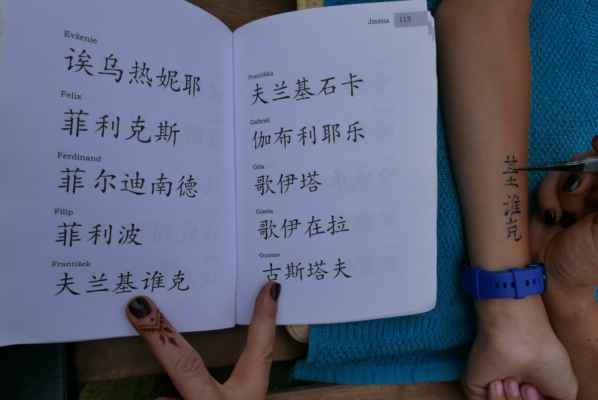 Evženie
诶乌热妮耶
Felix
菲利克斯
Ferdinand
菲尔迪南德
Filip
菲利波
František
夫兰基谁克
Jména 115
Františka
夫兰基石卡
Gabriel
伽布利耶乐
Gita
歌伊塔
Gizela
歌伊在拉
Gustav
古斯塔夫
基谁克